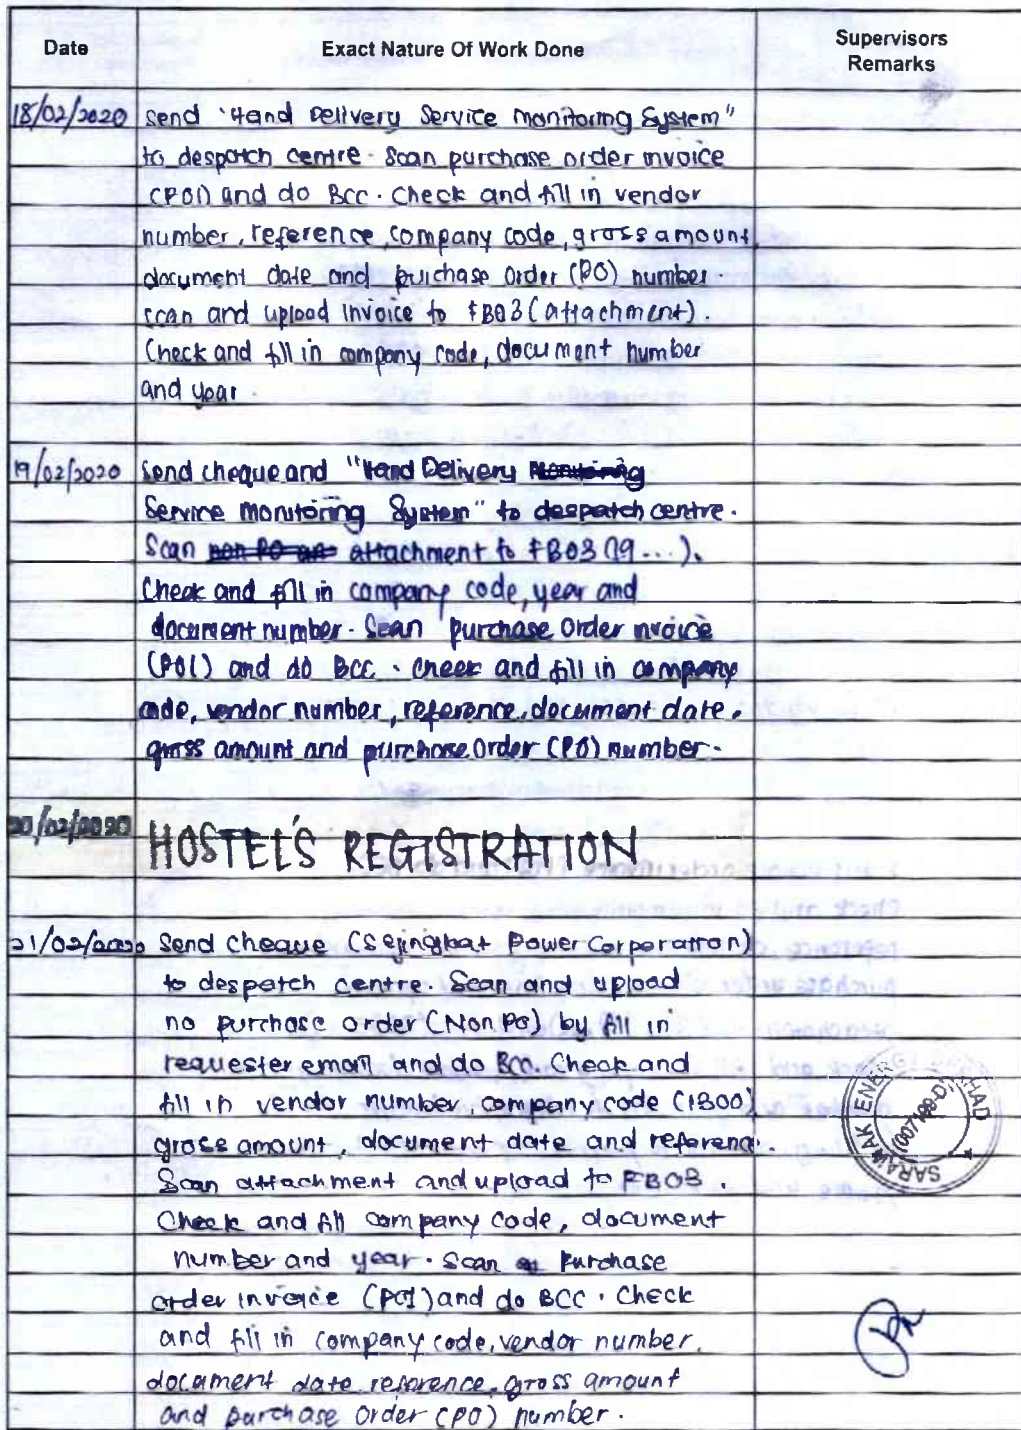 Date Exact Nature Of Work Done Supervisors Remarks
18/02/2020 send "Hand Delivery Service Monitoring System"
to despatch centre. Scan purchase order invoice
(POI) and do BCC. Check and fill in vendor
number, reference, company code, gross amount,
document date and purchase order (PO) number.
scan and upload invoice to FB03 (attachment).
Check and fill in company code, document number
and year.
19/02/2020 Send cheque and "Hand Delivery Monitoring
Service Monitoring System" to despatch centre.
Scan non PO an attachment to FB03 (19...).
Check and fill in company code, year and
document number. Scan purchase Order invoice
(POI) and do BCC. Check and fill in company
code, vendor number, reference, document date,
gross amount and purchase Order (PO) number.
20/02/2020 HOSTEL'S REGISTRATION
21/02/2020 Send Cheque (Sejingkat Power Corporation)
to despatch centre. Scan and upload
no purchase order (Non PO) by fill in
requester email and do BCC. Check and
fill in vendor number, company code (1300)
gross amount, document date and reference.
Scan attachment and upload to FB03.
Check and fill company code, document
number and year. Scan Purchase
order invoice (POI) and do BCC. Check
and fill in company code, vendor number,
document date, reference, gross amount
and purchase Order (PO) number.
SARAWAK ENER HAD
(007199-D)